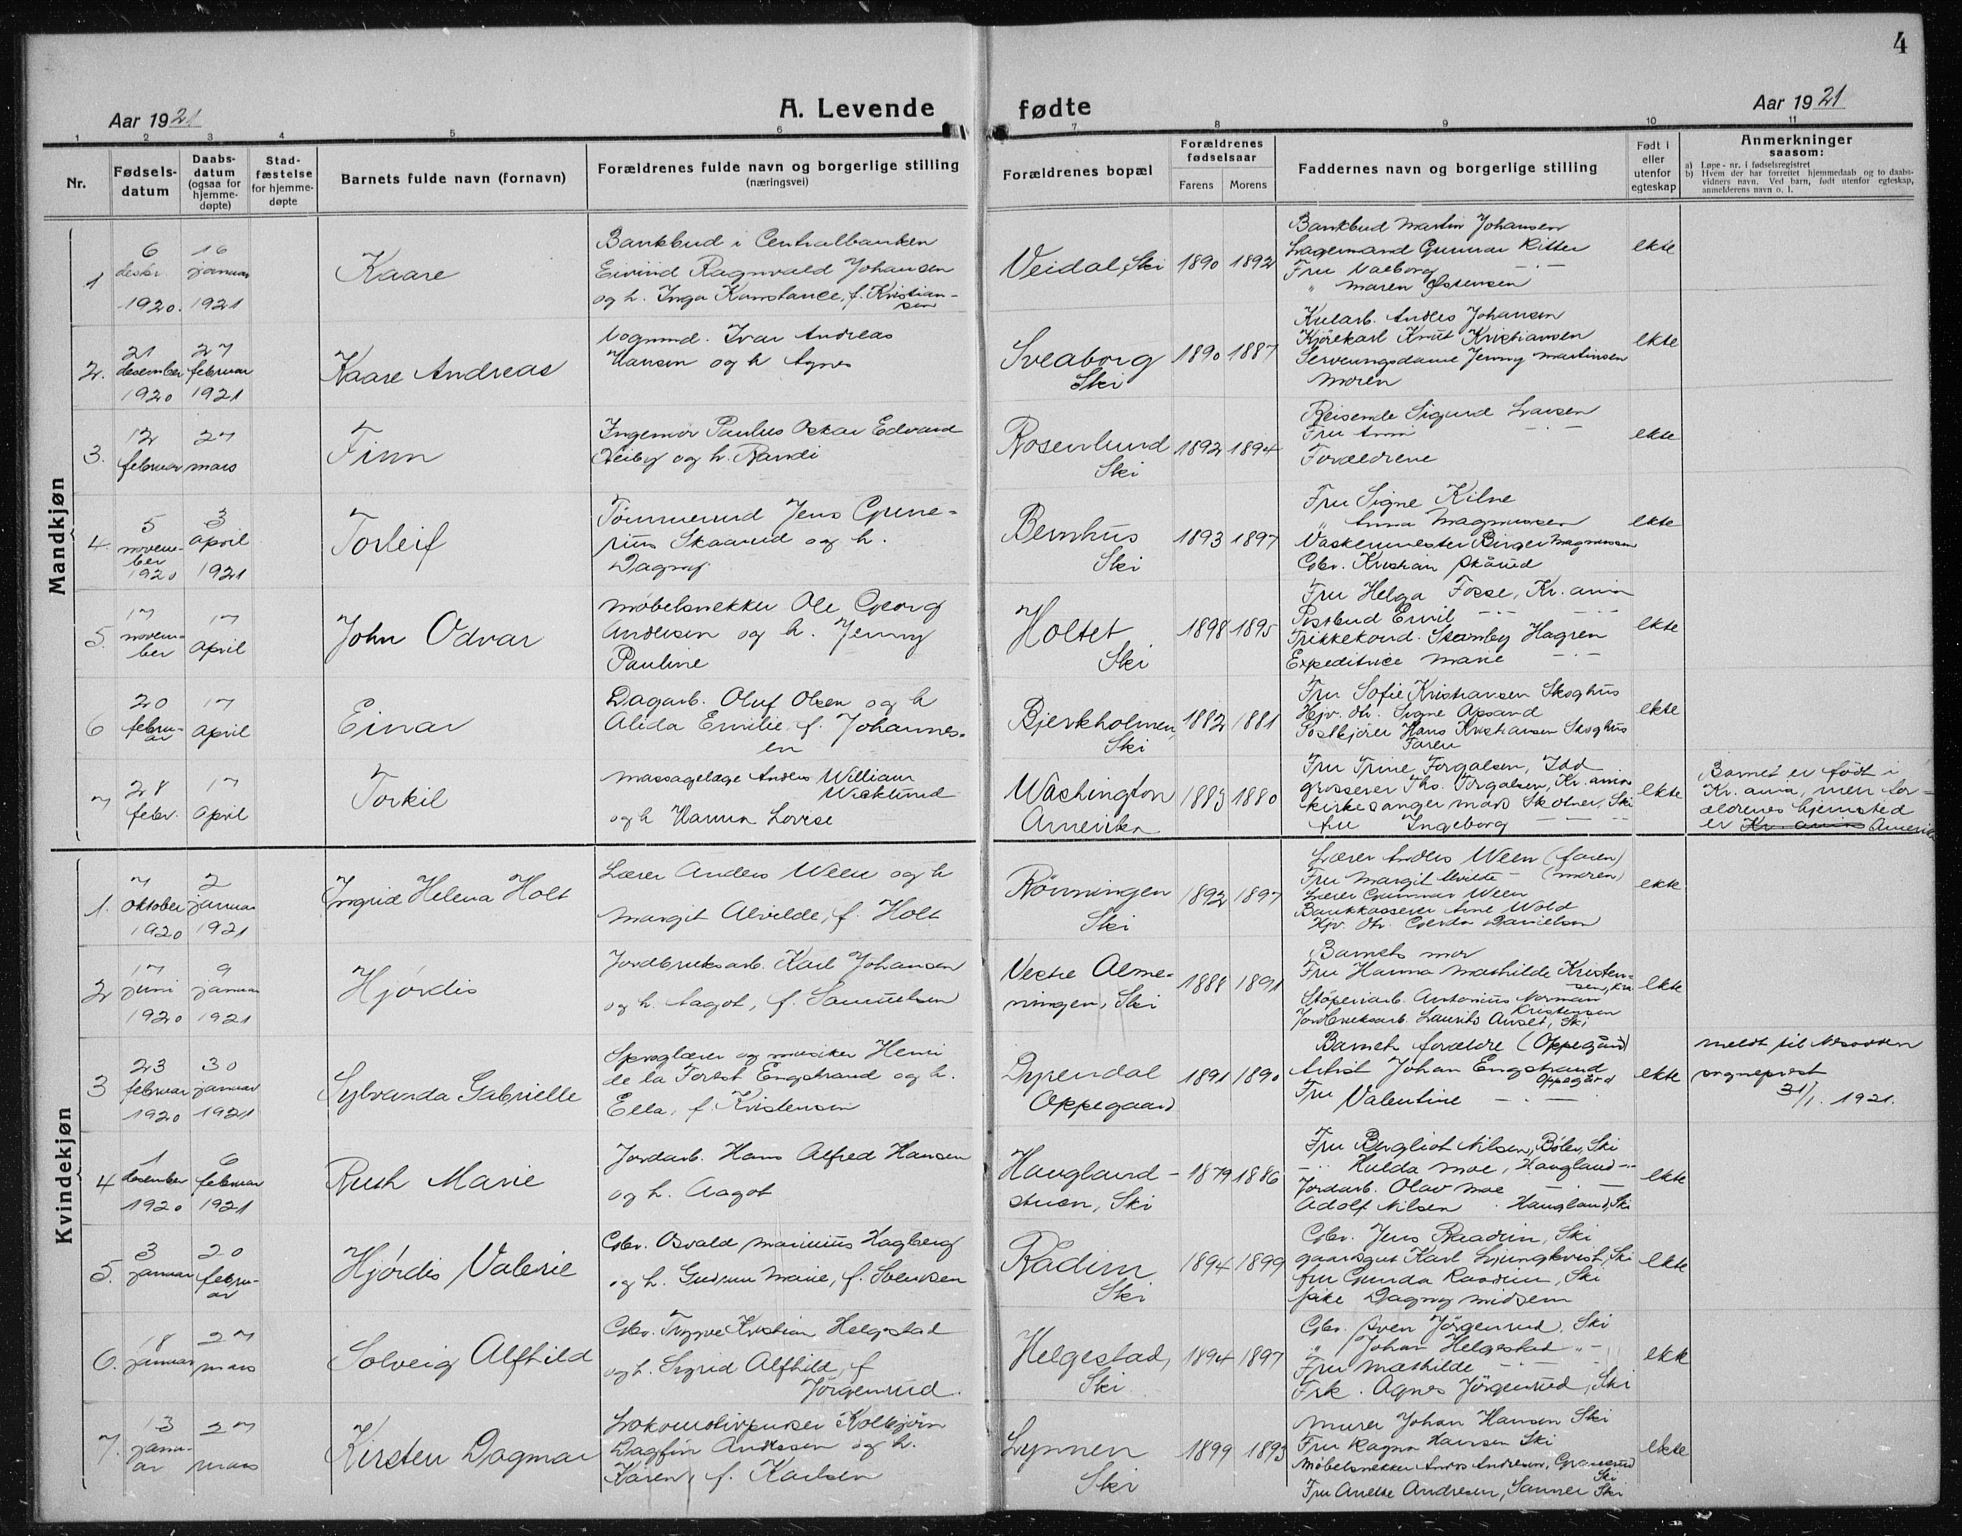 4
Aar 1921
A. Levende fødte
Aar 1921
1 2 3 4 5 6 7 8 9 10 11
Nr.
Fødsels-
datum
Daabs-
datum
(ogsaa for
hjemme-
døpte)
Stad-
fæstelse
for hjemme-
døpte
Barnets fulde navn (fornavn)
Forældrenes fulde navn og borgerlige stilling
(næringsvei)
Forældrenes bopæl
Forældrenes
fødselsaar
Farens Morens
Faddernes navn og borgerlige stilling
Født i
eller
utenfor
egteskap
Anmerkninger
saasom:
a) Løpe-nr. i fødselsregistret
b) Hvem der har forrettet hjemmedaab og to daabs-
vidners navn. Ved barn, født utenfor egteskap,
anmelderens navn o. l.
Mandkjøn
1
6
desbr.
1920.
16
januar
1921
Kaare
Bankbud i Centralbanken
Eivind Ragnvald Johansen
og h. Inga Konstance, f. Kristian-
sen
Veidal, Ski
1890 1892
Bankbud Martin Johansen
Lagermand Gunnar Ritter
Fru Valborg —"—
" Maren Østensen
ekte
2.
21
desember
1920
27
februar
1921
Kaare Andreas
Vognmd. Ivar Andreas
Hansen og h Agnes
Sveaborg
Ski
1890 1887
Anders Johansen
Kjørekarl Knut Kristiansen
Serveringsdame Jenny Martinsen
Moren
ekte
3.
12
februar
27
mars
Finn
Ingeniør Paulus Oskar Edvard
og h. Randi
Rosenlund
Ski
1892 1894
Reisende Sigurd Larsen
Fru Anni —"—
Forældrene
ekte
4.
5
novem-
ber
1920
3
April
1921
Torleif
Tømmermd Jens Grine-
rius Skaarud og h.
Dagny
Bernhus
Ski
1893 1897
Fru Signe Kilne
" Anna Magnussen
Vaskemester Birger Magnussen
Gbr. Kristian Skårud
ekte
5.
17
novem-
ber
17
April
John Odvar
Møbelsnekker Ole Georg
Andersen og h. Jenny
Pauline
Holtet
Ski
1898 1895
Fru Helga Fosse, Kr.ania
Postbud Emil —"— —"—
Trikkekond. Stamby Hagren
Expeditrice Marie —"—
ekte
6
20
febru-
ar
17
April
Einar
Dagarb. Oluf Olsen og h
Alida Emilie, f. Johannes-
en
Bjerkholmen,
Ski
1882 1881
Fru Sofie Kristiansen Skoghus
Hjv. dtr. Signe Opsand
Postkjører Hans Kristiansen Skoghus
Faren
ekte
7
28
febr.
17
April
Torkil
Massagelæge Anders William
Wicklund
og h Hanna Lovise
Washington
Amerika
1883 1880
Fru Trine Torgalsen, Idd
grosserer Ths. Torgalsen, Kr.ania
kirkesanger Mars Skolner, Ski
fru Ingeborg —"— —"—
ekte
Barnet er født i
Kr.ania, men for-
ældrenes hjemsted
er Kr.ania Amerika
Kvindekjøn
1.
7
oktober
1920
2
januar
1921
Ingrid Helena Holt
Lærer Anders Ween og h
Margit Alvilde, f. Holt
Rönningen
Ski
1892 1897
Lærer Anders Ween (faren)
Fru Margit Alvilde — (moren)
Lærer Gunnar Ween
Bankkasserer Arne Wold
Hjv. dtr. Gerda Danielsen
ekte
2
17
juni
1920
9
januar
1921
Hjørdis
Jordbruksarb. Karl Johansen
og h. Aagot, f. Samuelsen
Vestre Alme-
ningen, Ski
1888 1891
Barnets mor
Fru Hanna Mathilde Kristen-
sen, Kra
Støperiarb. Antonius Norman
Kristensen
Jordbruksarb. Laurits Anset, Ski
ekte
3
23
februar
1920
30
januar
1921
Sylvanda Gabrielle
Sproglærer og musiker Henri
de la Forest Engstrand og h.
Ella, f. Kristensen
Dyrendal
Oppegaard
1891 1890
Barnets forældre (Oppegård)
Artist Johan Engstrand
Oppegård
Fru Valentine —"—
ekte
Meldt til Nesodden
sogneprest
31/1. 1921.
4
1
desember
1920
6
februar
1921
Ruth Marie
Jordarb. Hans Alfred Hansen
og h. Aagot
Haugland-
stuen, Ski
1879 1886
Fru Bergliot Nilsen, Bøler, Ski
—"— Hulda Moe, Haugland —"—
Jordarb. Olav Moe —"— —"—
Adolf Nilsen Haugland, Ski
ekte
5.
3
januar
20
febru-
ar
Hjørdis Valerie
Gbr. Osvald Marinius Hagberg
og h. Gudrun Marie, f. Svensen
Rådim
Ski
1894 1899
Gbr. Jens Raadim, Ski
gaardsgut Karl Ljungkvist, Ski
fru Gunda Raadim, Ski
pike Dagny Midsem
ekte
6.
18
januar
27
mars
Solveig Alfhild
Gbr. Trygve Kristian Helgestad
og h. Sigrid Alfhild, f
Jørgenrud.
Helgestad,
Ski
1894 1897
Gbr. Sven Jørgenrud, Ski
" Johan Helgestad —"—
Fru Mathilde —"— —"—
Frk. Agnes Jørgenrud, Ski
ekte
7.
13
janu-
ar
27
mars
Kirsten Dagmar
Lokomotivpusser Kolbjørn
Dagfin Andersen og h.
Karen, f. Karlsen
Lynnen
Ski
1899 1893
Murer Johan Hansen Ski
Fru Ragna Hansen Ski
Møbelsnekker Anders Andresen, Granerud
Ski
Fru Anette Andresen, Sanner Ski
ekte